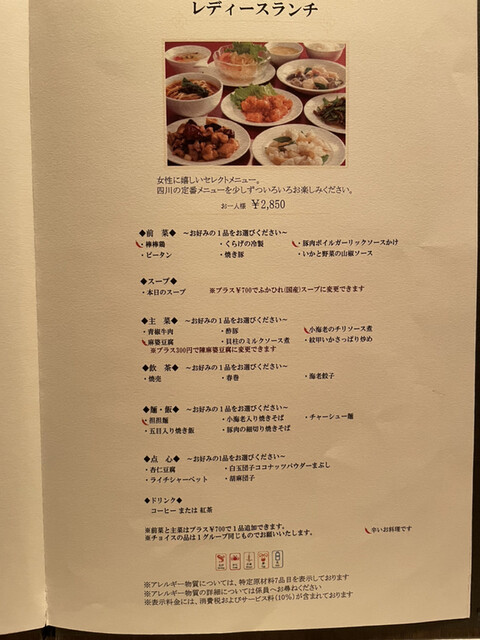 レディースランチ
女性に嬉しいセレクトメニュー。
四川の定番メニューを少しずついろいろお楽しみください。
お一人様 ￥2,850
◆前 菜◆ ～お好みの１品をお選びください～
・棒棒鶏 ・くらげの冷製 ・豚肉ボイルガーリックソースかけ
・ピータン ・焼き豚 ・いかと野菜の山椒ソース
◆スープ◆
・本日のスープ ※プラス￥700でふかひれ(国産)スープに変更できます
◆主 菜◆ ～お好みの１品をお選びください～
・青椒牛肉 ・酢豚 ・小海老のチリソース煮
・麻婆豆腐 ・貝柱のミルクソース煮 ・紋甲いかさっぱり炒め
※プラス300円で陳麻婆豆腐に変更できます
◆飲 茶◆ ～お好みの１品をお選びください～
・焼売 ・春巻 ・海老餃子
◆麺・飯◆ ～お好みの１品をお選びください～
・担担麺 ・小海老入り焼きそば ・チャーシュー麺
・五目入り焼き飯 ・豚肉の細切り焼きそば
◆点 心◆ ～お好みの1品をお選びください～
・杏仁豆腐 ・白玉団子ココナッツパウダーまぶし
・ライチシャーベット ・胡麻団子
◆ドリンク◆
コーヒー または 紅茶
※前菜と主菜はプラス￥700で１品追加できます。
※チョイスの品は１グループ同じものでお願いいたします。
辛いお料理です
※アレルギー物質については、特定原材料7品目を表示しております
※アレルギー物質の詳細については係員へお尋ねください
※表示料金には、消費税およびサービス料(10%)が含まれております